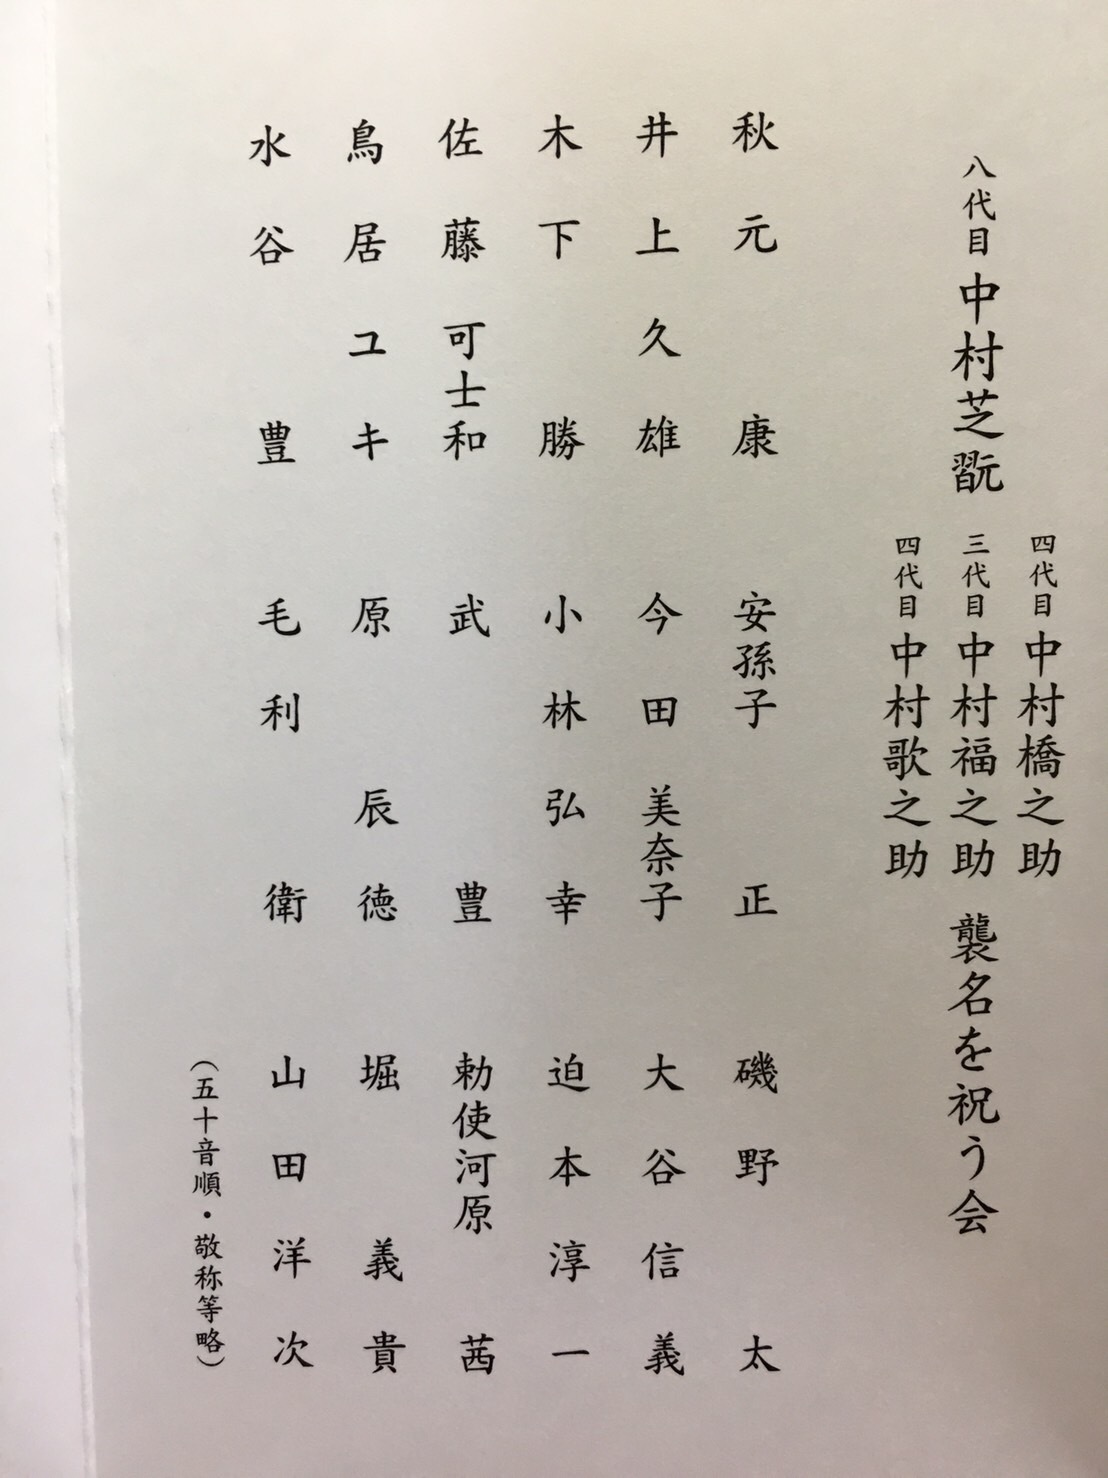 八代目 中村芝翫
四代目 中村橋之助
三代目 中村福之助
四代目 中村歌之助
襲名を祝う会
秋元 康
安孫子 正
磯野 太
井上久雄
今田美奈子
大谷信義
木下 勝
小林弘幸
迫本淳一
佐藤可士和
武 豊
勅使河原 茜
鳥居ユキ
原 辰徳
堀 義貴
水谷 豊
毛利 衛
山田洋次
(五十音順・敬称等略)